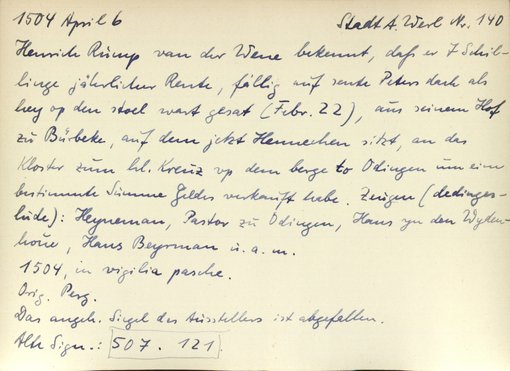 1504 April 6 Stadt A. Werl No. 140
Henrich Rump van der Wene bekennt, daß er 7 Schil-
linge jährlicher Rente, fällig auf sente Peters dach als
hey op den stoel wart gesat (Febr. 22), aus seinem Hof
zu Bürbeke, auf dem jetzt Hennechen sitzt, an das
Kloster zum hl. Kreuz up dem berge to Odingen um eine
bestimmte Summe Geldes verkauft habe. Zeugen (dedinges-
lüde): Heyneman, Pastor zu Odingen, Hans yn den Wyden-
hove, Hans Beyrman u. a. m.
1504, in vigilia pasche.
Orig. Perg.
Das angeh. Siegel des Ausstellers ist abgefallen.
Alte Sign.: 507. 121.